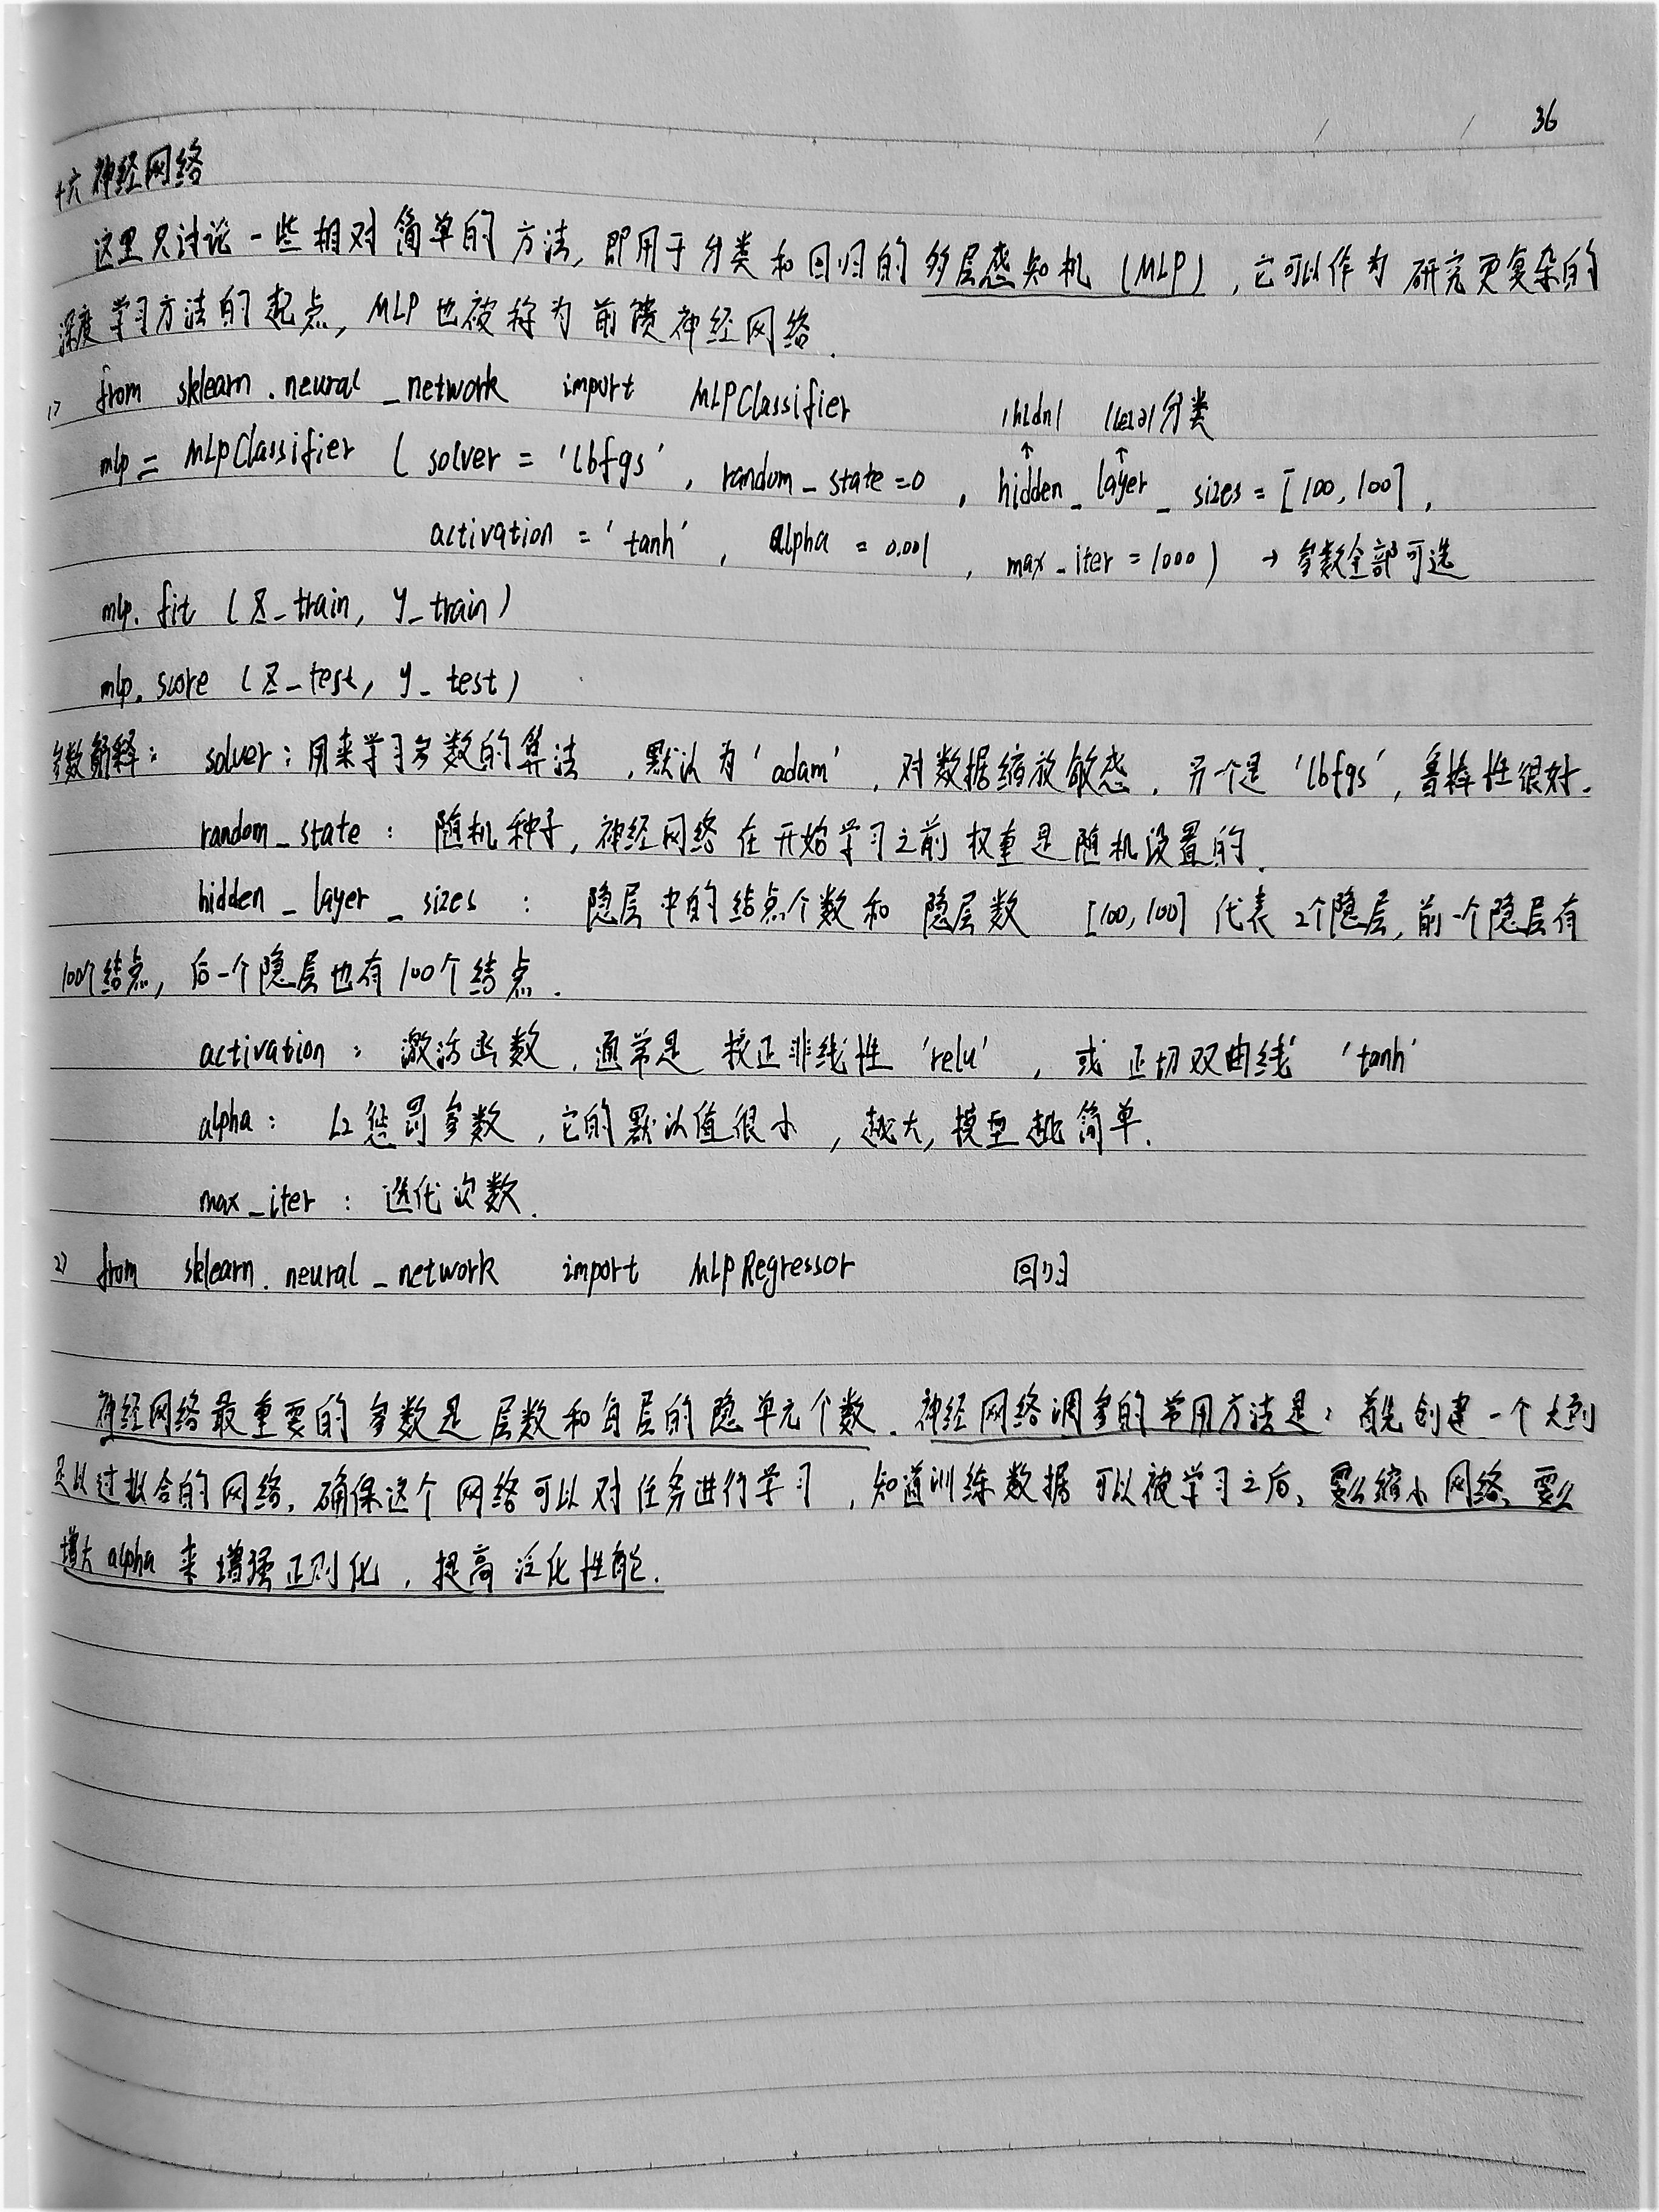 36
十六 神经网络
这里只讨论一些相对简单的方法,即用于分类和回归的多层感知机(MLP),它可以作为研究更复杂的
深度学习方法的起点,MLP也被称为前馈神经网络.
1) from sklearn.neural_network import MLPClassifier |hidn| |leiə| 分类
↑ ↑
mlp = MLPClassifier ( solver = 'lbfgs', random_state=0, hidden_layer_sizes = [100,100],
activation = 'tanh', alpha = 0.001, max_iter = 1000) → 参数全部可选
mlp.fit (X_train, y_train)
mlp.score (X_test, y_test)
参数解释: solver:用来学习参数的算法,默认为'adam',对数据缩放敏感.另个是'lbfgs',鲁棒性很好.
random_state: 随机种子,神经网络在开始学习之前权重是随机设置的.
hidden_layer_sizes : 隐层中的结点个数和隐层数 [100,100] 代表2个隐层,前一个隐层有
100个结点,后一个隐层也有100个结点.
activation: 激活函数.通常是校正非线性'relu',或正切双曲线'tanh'
alpha: L2惩罚参数,它的默认值很小,越大,模型越简单.
max_iter: 迭代次数.
2) from sklearn.neural_network import MLPRegressor 回归
神经网络最重要的参数是层数和每层的隐单元个数.神经网络调参的常用方法是:首先创建一个大到
足以过拟合的网络,确保这个网络可以对任务进行学习,知道训练数据可以被学习之后、要么缩小网络、要么
增大alpha来增强正则化,提高泛化性能.